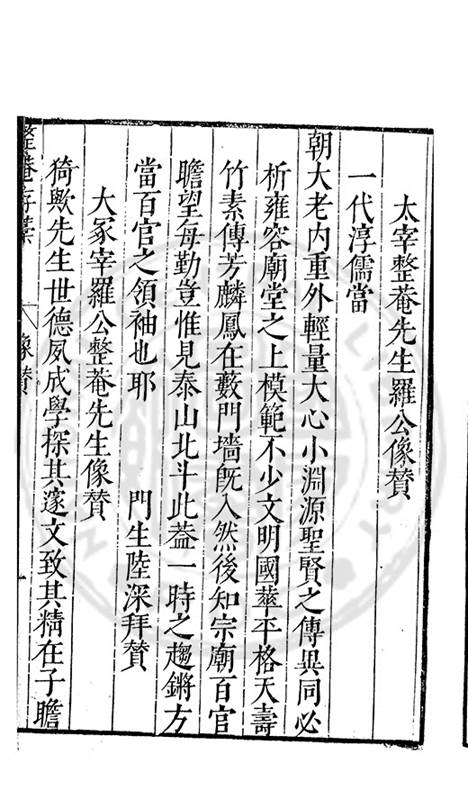 太宰整菴先生羅公像贊
一代淳儒當
朝大老內重外輕量大心小淵源聖賢之傳異同必
析雍容廟堂之上模範不少文明國華平格天壽
竹素傳芳麟鳳在藪門墻旣入然後知宗廟百官
瞻望每勤豈惟見泰山北斗此蓋一時之趨鏘方
當百官之領袖也耶　門生陸深拜贊
大冢宰羅公整菴先生像贊
猗歟先生世德夙成學探其邃文致其精在子瞻
整菴存藁　像贊